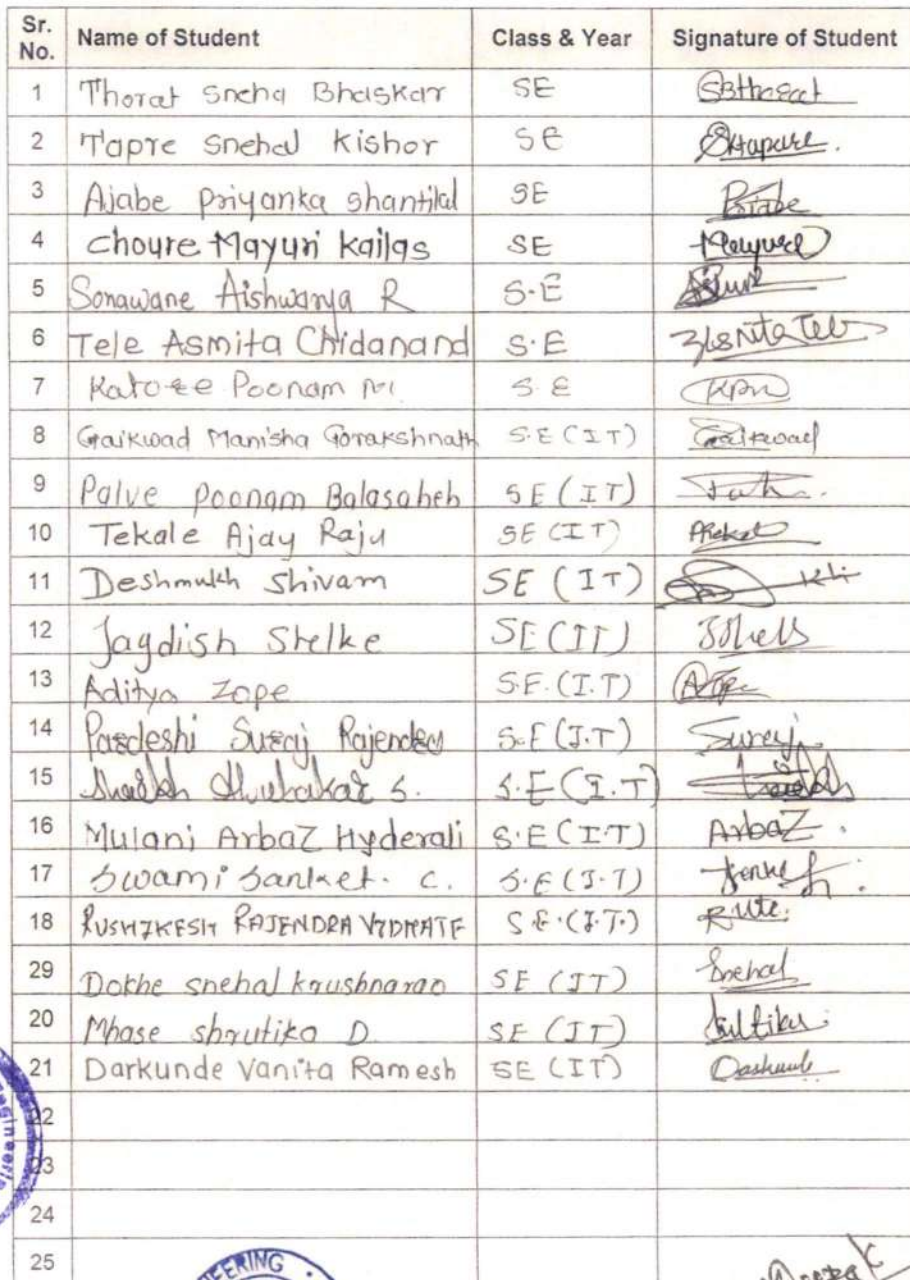 Sr. No. Name of Student Class & Year Signature of Student
1 Thorat Sneha Bhaskar SE
2 Tapre Snehal Kishor SE
3 Ajabe Priyanka Shantilal SE
4 Choure Mayuri Kailas SE
5 Sonawane Aishwarya R S.E
6 Tele Asmita Chidanand S.E Asmita Tele
7 Katore Poonam M. S.E KPM
8 Gaikwad Manisha Gorakshnath S.E (IT) Gaikwad
9 Palve Poonam Balasaheb SE (IT)
10 Tekale Ajay Raju SE (IT)
11 Deshmukh Shivam SE (IT)
12 Jagdish Shelke SE (IT)
13 Aditya Zope S.E. (I.T)
14 Pardeshi Suraj Rajendra S.E (I.T) Suraj
15 S. S.E (I.T)
16 Mulani Arbaz Hyderali S.E (I.T) Arbaz.
17 Swami Sanket. C. S.E (I.T)
18 RUSHIKESH RAJENDRA VIDHATE S.E. (I.T.)
29 Dokhe snehal krushnarao SE (IT) Snehal
20 Mhase shrutika D SE (IT)
21 Darkunde Vanita Ramesh SE (IT)
22
23
24
25